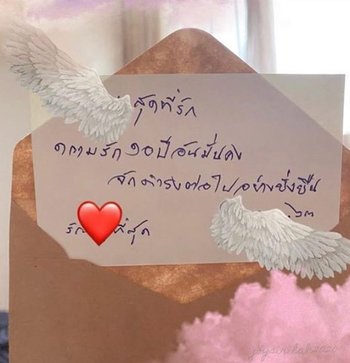 สุดที่รัก
ความรัก ๑๐ ปี อันมั่นคง
จักดำรงต่อไปอย่างยั่งยืน
รัก ที่สุด